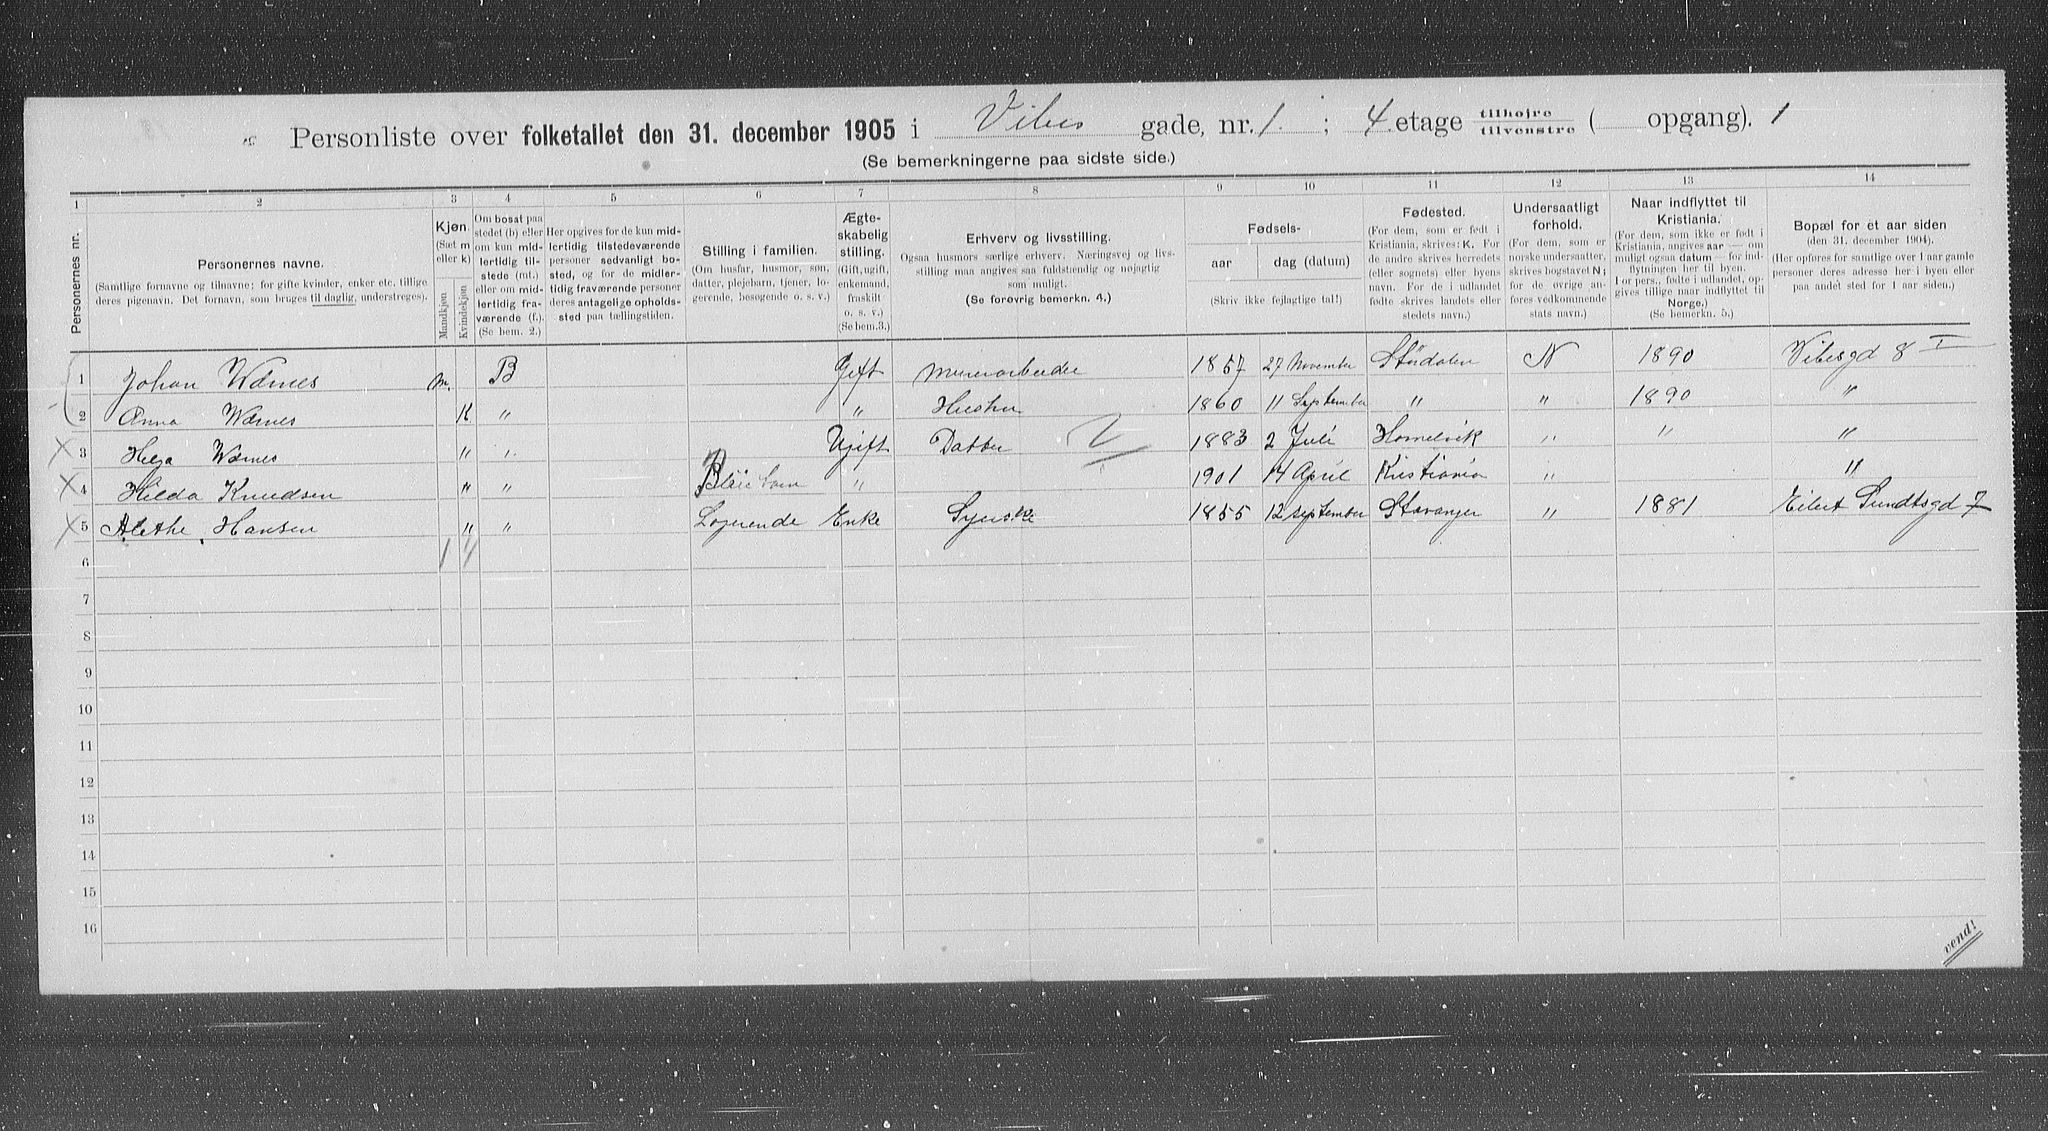 Personliste over folketallet den 31. december 1905 i Vibes gade, nr. 1. ; 4 etage tilhøjre / tilvenstre ( opgang). 1
(Se bemerkningerne paa sidste side.)
1 2 3 4 5 6 7 8 9 10 11 12 13 14
Personernes nr.
Personernes navne.
(Samtlige fornavne og tilnavne; for gifte kvinder, enker etc. tillige deres pigenavn. Det fornavn, som bruges til daglig, understreges).
Kjøn.
(Sæt m eller k)
Mandkjøn
Kvindekjøn
Om bosat paa stedet (b) eller om kun midlertidig tilstede (mt.) eller om midlertidig fraværende (f.). (Se bem. 2.)
Her opgives for de kun midlertidig tilstedeværende personer sedvanligt bosted, og for de midlertidig fraværende personer deres antagelige opholdssted paa tællingstiden.
Stilling i familien.
(Om husfar, husmor, søn, datter, plejebarn, tjener, logerende, besøgende o. s. v.)
Ægteskabelig stilling.
(Gift, ugift, enkemand, fraskilt o. s. v.) (Se bem. 3.)
Erhverv og livsstilling.
Ogsaa husmors særlige erhverv. Næringsvej og livsstilling maa angives saa fuldstændig og nøjagtig som muligt.
(Se forøvrig bemerkn. 4.)
Fødsels-
aar
dag (datum)
(Skriv ikke fejlagtige tal!)
Fødested.
(For dem, som er født i Kristiania, skrives: K. For de andre skrives herredets (eller sognets) eller byens navn. For de i udlandet fødte skrives landets eller stedets navn.)
Undersaatligt forhold.
(For dem, som er norske undersaatter, skrives bogstavet N; for de øvrige anføres vedkommende stats navn.)
Naar indflyttet til Kristiania.
(For dem, som ikke er født i Kristiania, angives aar — om muligt ogsaa datum — for indflytningen her til byen. For pers., fødte i udlandet, opgives tillige naar indflyttet til Norge.)
(Se bemerkn. 5.)
Bopæl for et aar siden
(den 31. december 1904).
(Her opføres for samtlige over 1 aar gamle personer deres adresse her i byen eller paa andet sted for 1 aar siden.)
1 Johan Wærnes m. B Gift Murerarbeider 1857 27 November Stördalen N 1890 Vibesgd 8 I
2 Anna Wærnes K " " Hustru 1860 11 September " " 1890 "
3 Helga Wærnes " " Ugift Datter 1883 2 Juli Homelvik " " "
4 Hilda Knudsen " " " 1901 14 April Kristiania " "
5 Alethe Hansen " " Logerende Enke Syerske 1855 12 september Stavanger " 1881 Eilert Sundtsgd 7
1 4
6
7
8
9
10
11
12
13
14
15
16
vend!